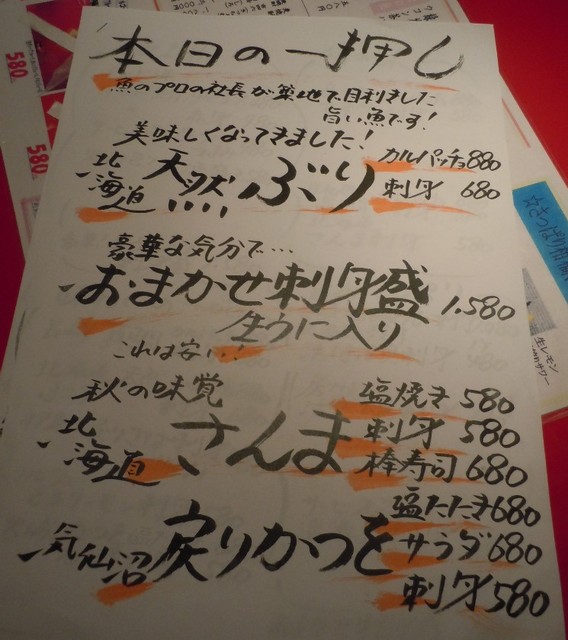 本日の一押し
魚のプロの社長が築地で目利きした
旨い魚です!
美味しくなってきました!
北海道 天然 ぶり
カルパッチョ 880
刺身 680
豪華な気分で…
おまかせ刺身盛 1,580
生うに入り
これは安い!
秋の味覚
北海道 さんま
塩焼き 580
刺身 580
棒寿司 680
気仙沼 戻りかつを
塩たたき 680
サラダ 680
刺身 580
580
580
生レモン